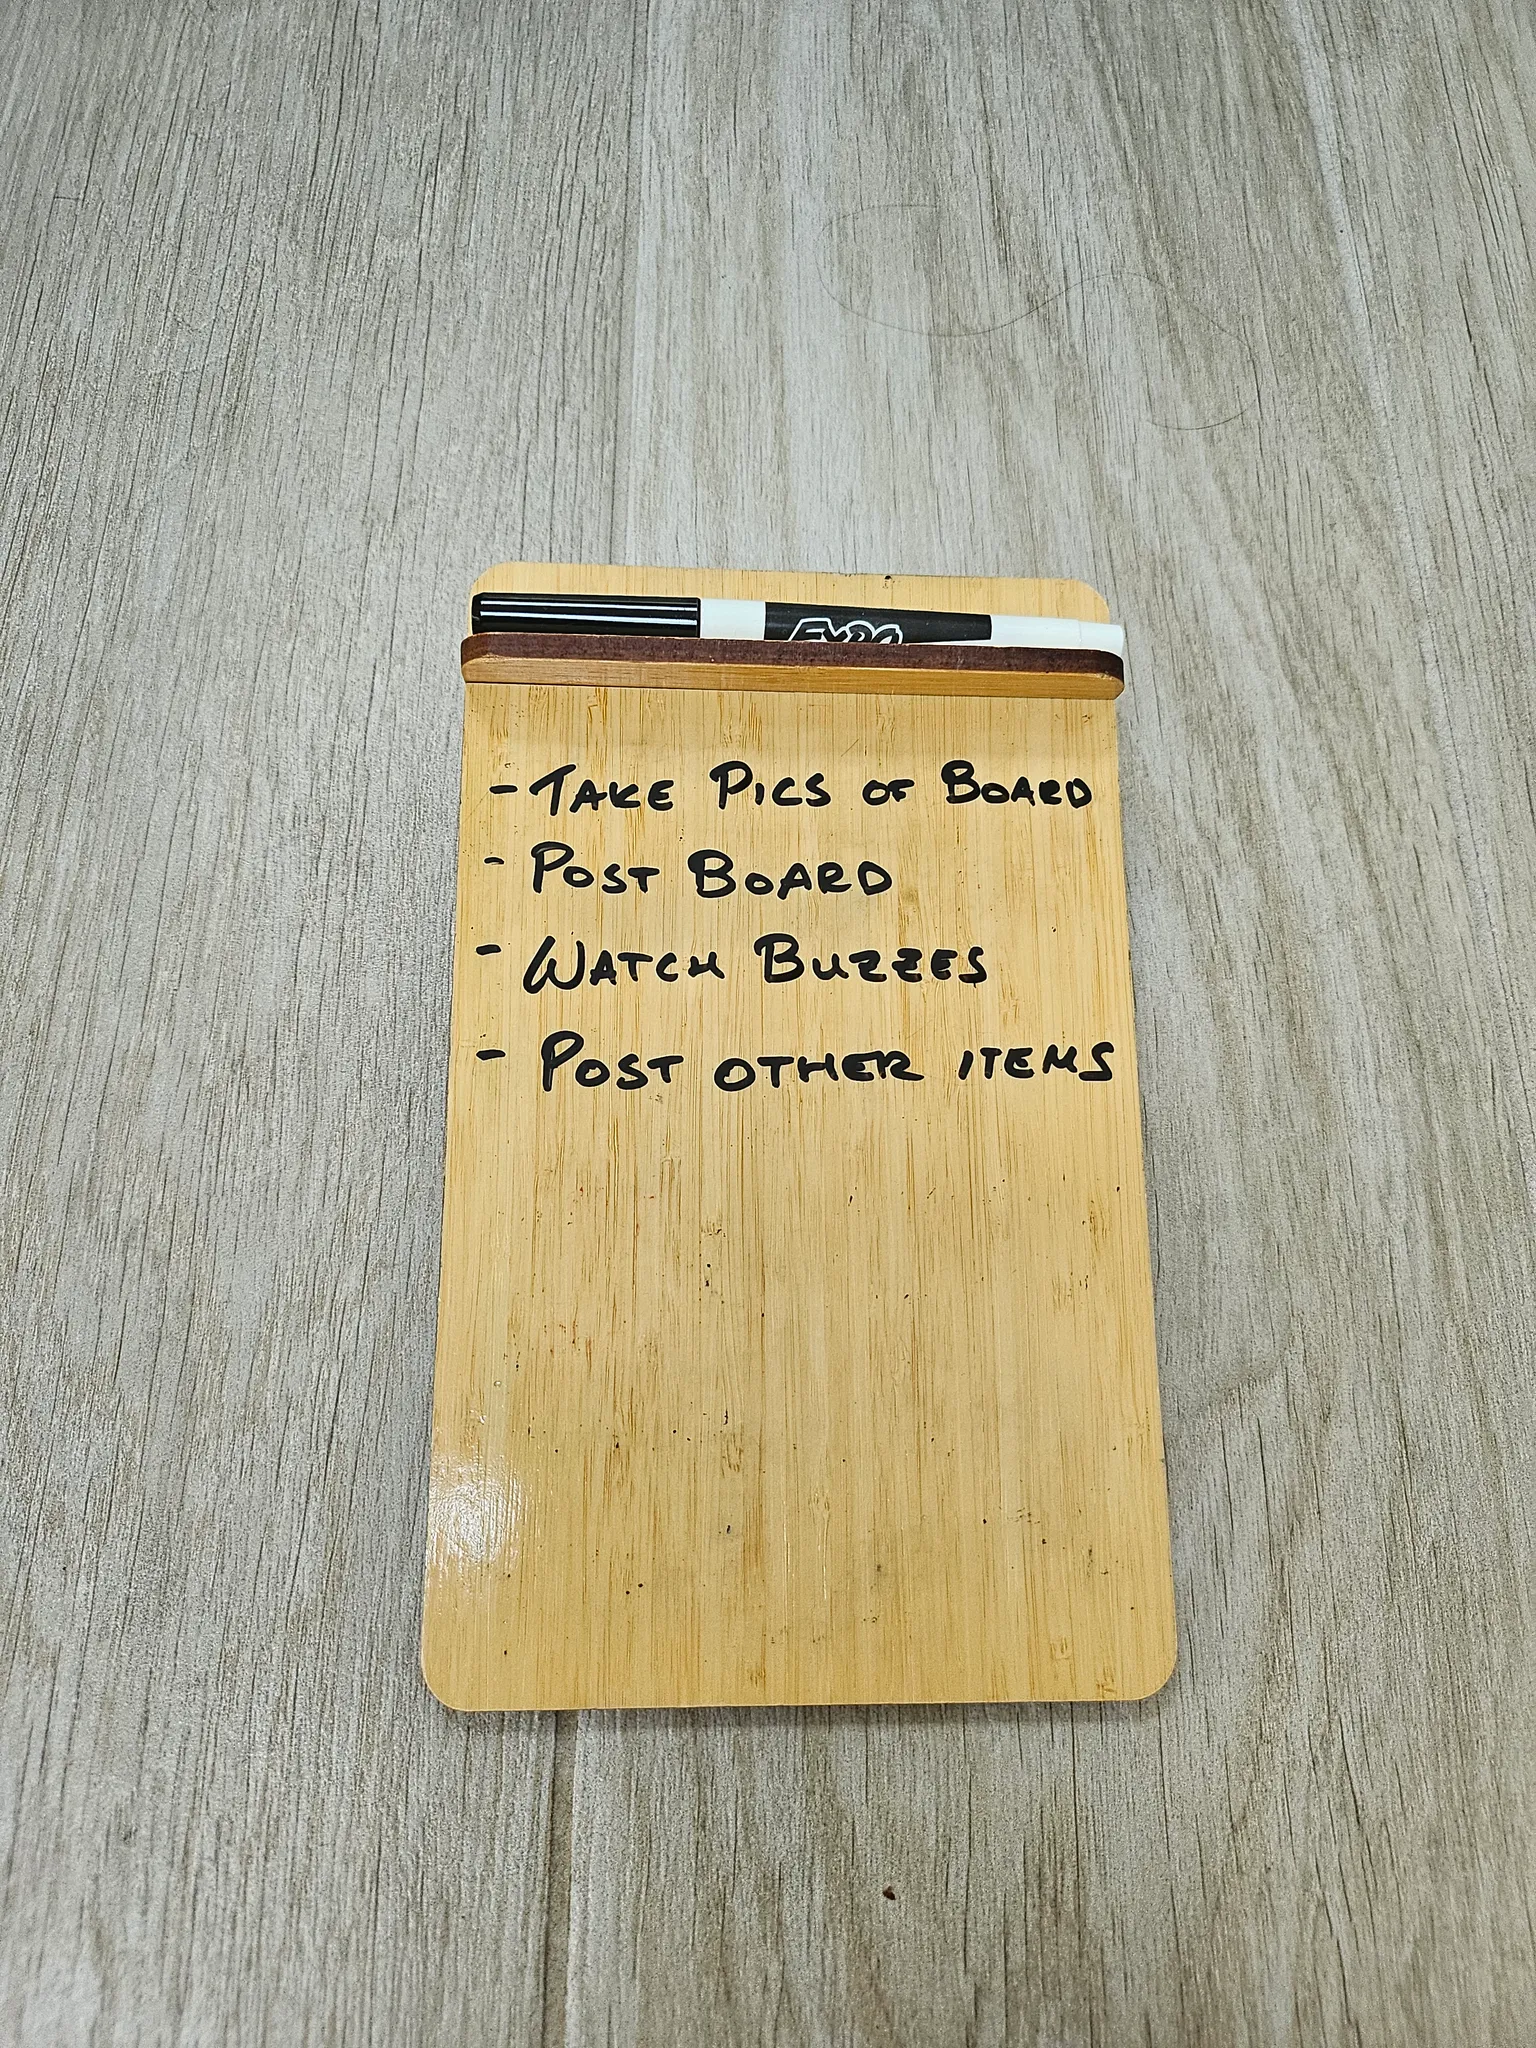 EXPO
- TAKE PICS OF BOARD
- POST BOARD
- WATCH BUZZES
- POST OTHER ITEMS